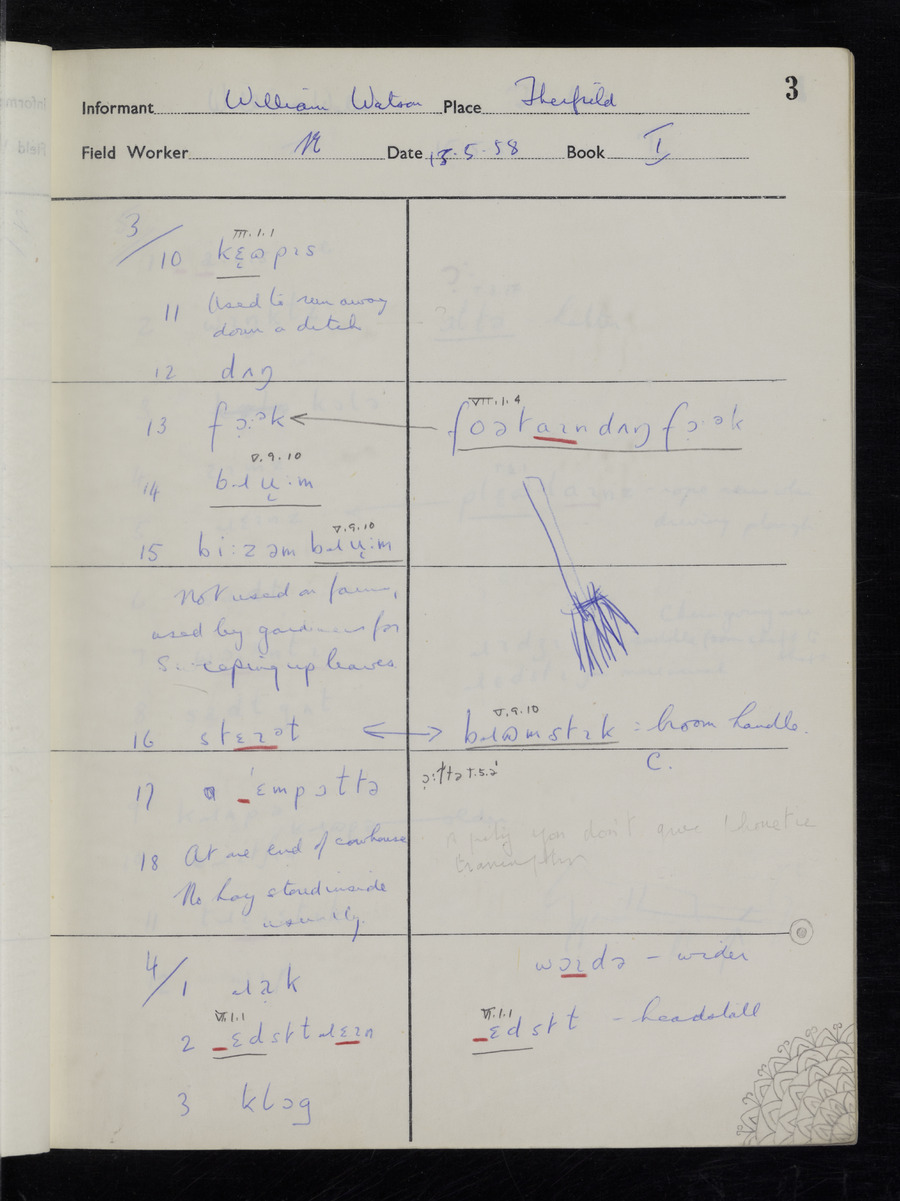 3
Informant William Watson Place Therfield
Field Worker Date 13.5.58 Book I
3/
III.1.1
10 kɛ̣ɷpɪs
11 Used to run away
down a ditch
12 dʌŋ
VII.1.4
13 fɔ̣:ək ← foəʈaɪndʌŋfɔ̣:ək
V.9.10
14 bɹʉ̣:m
V.9.10
15 bi:zəm bɹʉ̣:m
Not used on farms,
used by gardeners for
sweeping up leaves
V.9.10
16 stɛɪət ↔ bɹɷmstɪk = broom handle.
C.
17 ɒ 'ɛmpɔttə
18 At one end of cowhouse
No hay stored inside
usually.
A pity you don't give phonetic
transcription
4/
wɔɪdə - wider
1 ɹɪk
VI.1.1 VI.1.1
2 ɛdstɫɹɛɪn ɛdstɫ - headstall
3 klɔg